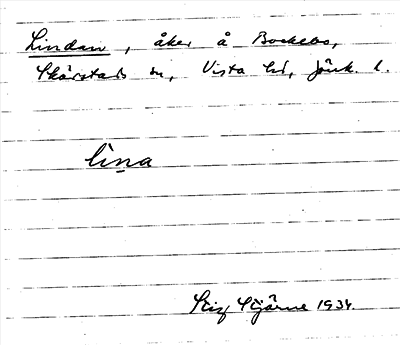 Lindan, åker å Bockebo,
Skärstads sn, Vista hd, Jönk. l.
lìṇa
Stig Stjärne 1934.